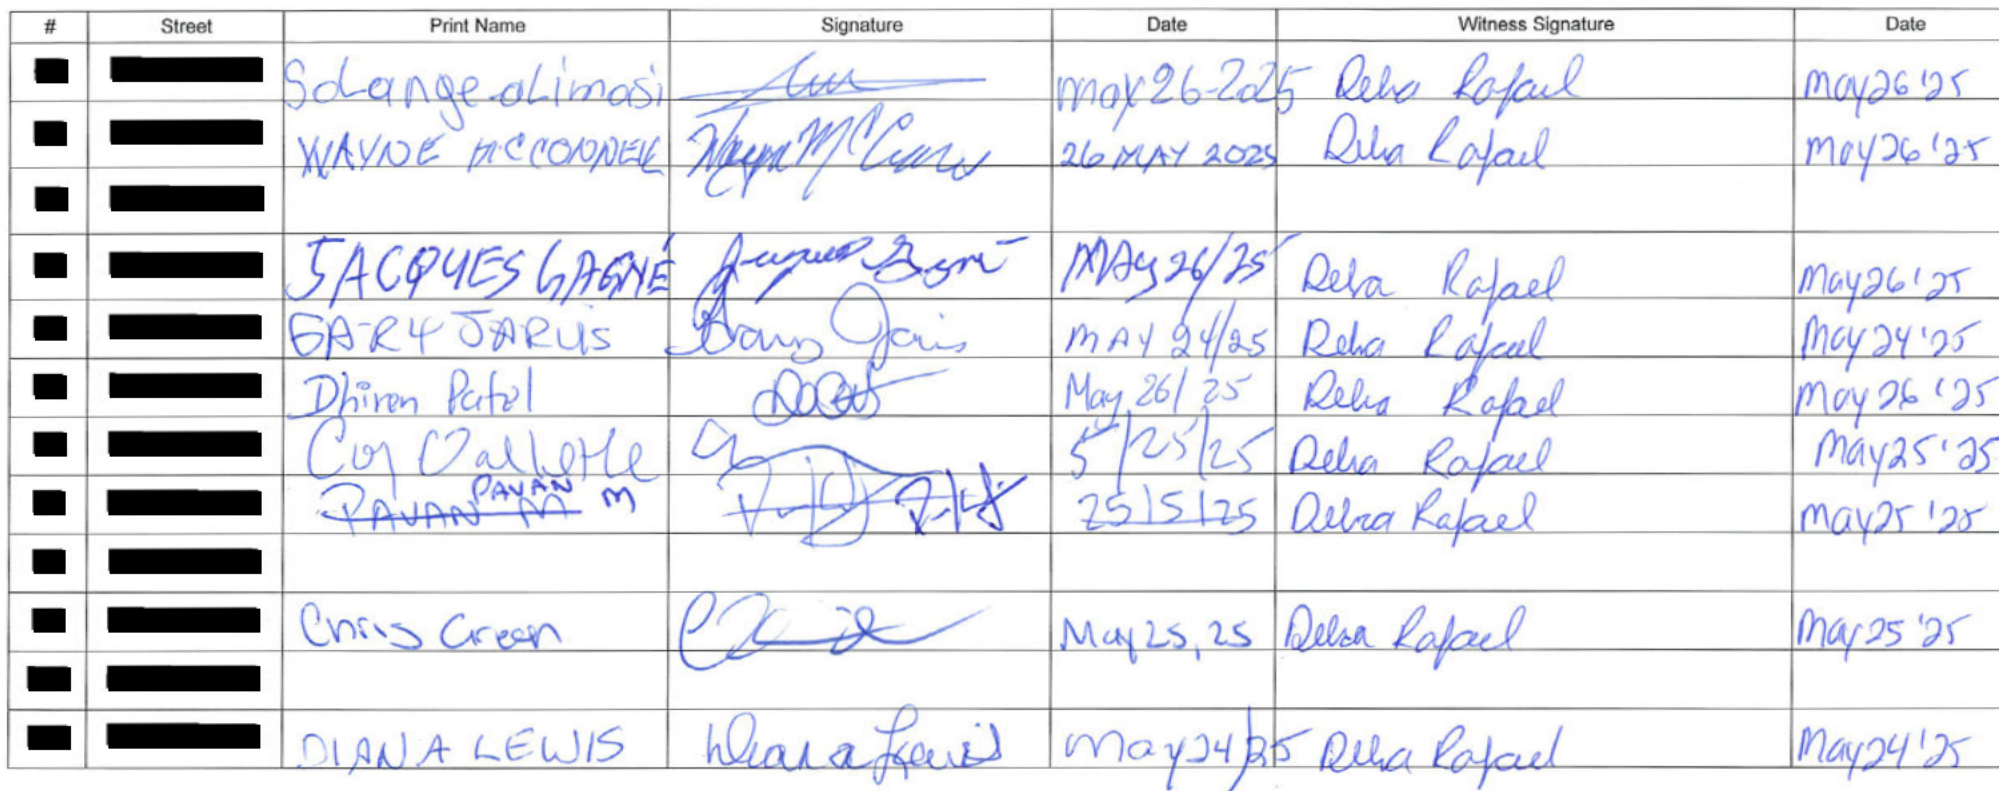 # Street Print Name Signature Date Witness Signature Date
Solange alimasi may 26-2025 Debra Rafael May 26 '25
WAYNE MCCONNELL Wayne McConn 26 MAY 2025 Debra Rafael May 26 '25
JACQUES GAGNÉ Jacques Gagné MAy 26/25 Debra Rafael May 26 '25
GARY JARVIS Gary Jarvis MAY 24/25 Debra Rafael May 24 '25
Dhiren Patel May 26/25 Debra Rafael May 26 '25
Cory Vallette 5/25/25 Debra Rafael May 25 '25
PAVAN M PAVAN M 25/5/25 Debra Rafael May 25 '25
Chris Green May 25, 25 Debra Rafael May 25 '25
DIANA LEWIS Diana Lewis May 24/25 Debra Rafael May 24 '25